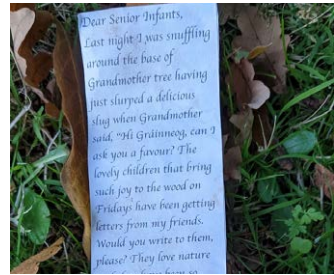 Dear Senior Infants,
Last night I was snuffling
around the base of
Grandmother tree having
just slurped a delicious
slug when Grandmother
said, "Hi Gráinneog, can I
ask you a favour? The
lovely children that bring
such joy to the wood on
Fridays have been getting
letters from my friends.
Would you write to them,
please? They love nature